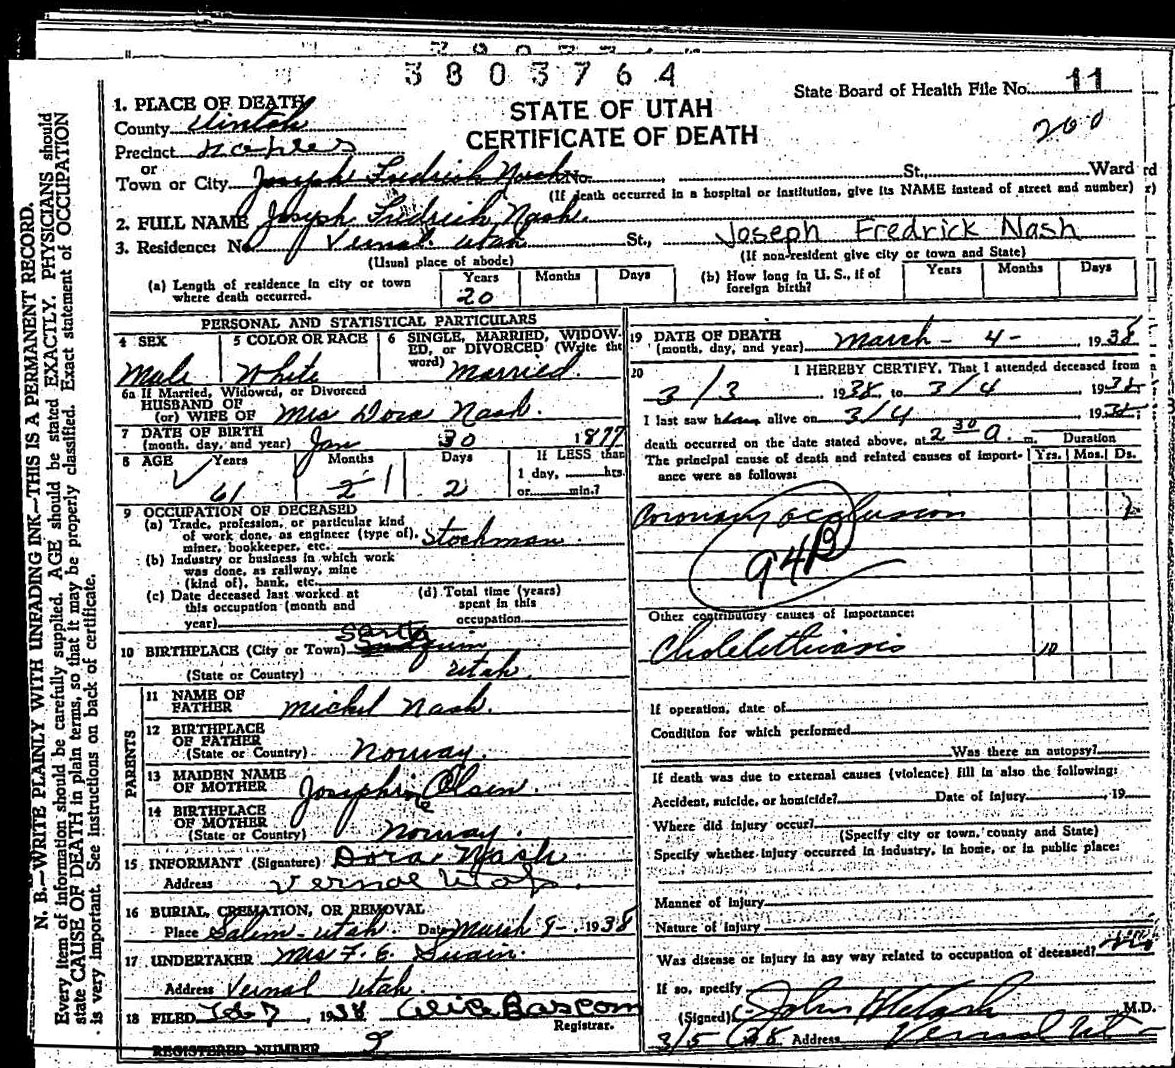 3803764
State Board of Health File No. 11
STATE OF UTAH
CERTIFICATE OF DEATH
200
1. PLACE OF DEATH
County Uintah
Precinct Naples
or
Town or City Joseph Fredrich Nash (If No. St., Ward rd
(If death occurred in a hospital or institution, give its NAME instead of street and number) r)
2. FULL NAME Joseph Fredrich Nash.
3. Residence: No. Vernal. Utah St., Joseph Fredrick Nash
(Usual place of abode) (If non-resident give city or town and State)
(a) Length of residence in city or town where death occurred. Years 20 Months Days
(b) How long in U. S., if of foreign birth? Years Months Days
PERSONAL AND STATISTICAL PARTICULARS
4 SEX Male
5 COLOR OR RACE White
6 SINGLE, MARRIED, WIDOWED, or DIVORCED (Write the word) Married.
6a If Married, Widowed, or Divorced
HUSBAND OF
(or) WIFE OF Mrs Dora Nash.
7 DATE OF BIRTH
(month, day, and year) Jan 30 1877
8 AGE Years 61 Months 2 1 Days 2
If LESS than
1 day, hrs.
or min.?
9 OCCUPATION OF DECEASED
(a) Trade, profession, or particular kind
of work done, as engineer (type of),
miner, bookkeeper, etc. Stockman
(b) Industry or business in which work
was done, as railway, mine
(kind of), bank, etc.
(c) Date deceased last worked at
this occupation (month and
year)
(d) Total time (years)
spent in this
occupation
10 BIRTHPLACE (City or Town) Santaquin
(State or Country) Utah
PARENTS
11 NAME OF
FATHER Michel Nash.
12 BIRTHPLACE
OF FATHER
(State or Country) Norway.
13 MAIDEN NAME
OF MOTHER Josephine Olsen.
14 BIRTHPLACE
OF MOTHER
(State or Country) Norway.
15 INFORMANT (Signature) Dora Nash
Address Vernal Utah.
16 BURIAL, CREMATION, OR REMOVAL
Place Salem - Utah. Date March 9 - 1938
17 UNDERTAKER Mrs F. E. Swain.
Address Vernal Utah.
18 FILED Feb 7, 1938 Alice Bascom
Registrar.
REGISTERED NUMBER 9
19 DATE OF DEATH
(month, day, and year) March - 4 - 1938
20 I HEREBY CERTIFY, That I attended deceased from
3/3 1938, to 3/4 1938
I last saw h alive on 3/4, 1938;
death occurred on the date stated above, at 2 30 a. m.
The principal cause of death and related causes of importance were as follows:
Duration
Yrs. Mos. Ds.
Coronary occlusion 2
94B
Other contributory causes of importance:
Cholelithiasis 10
If operation, date of
Condition for which performed
Was there an autopsy?
If death was due to external causes (violence) fill in also the following:
Accident, suicide, or homicide? Date of injury, 19
Where did injury occur?
(Specify city or town, county and State)
Specify whether injury occurred in industry, in home, or in public place:
Manner of injury
Nature of injury
Was disease or injury in any way related to occupation of deceased? no
If so, specify
(Signed) John M.D.
3/5 1938 Address Vernal Ut
N. B.—WRITE PLAINLY WITH UNFADING INK—THIS IS A PERMANENT RECORD.
Every item of information should be carefully supplied. AGE should be stated EXACTLY. PHYSICIANS should
state CAUSE OF DEATH in plain terms, so that it may be properly classified. Exact statement of OCCUPATION
is very important. See instructions on back of certificate.